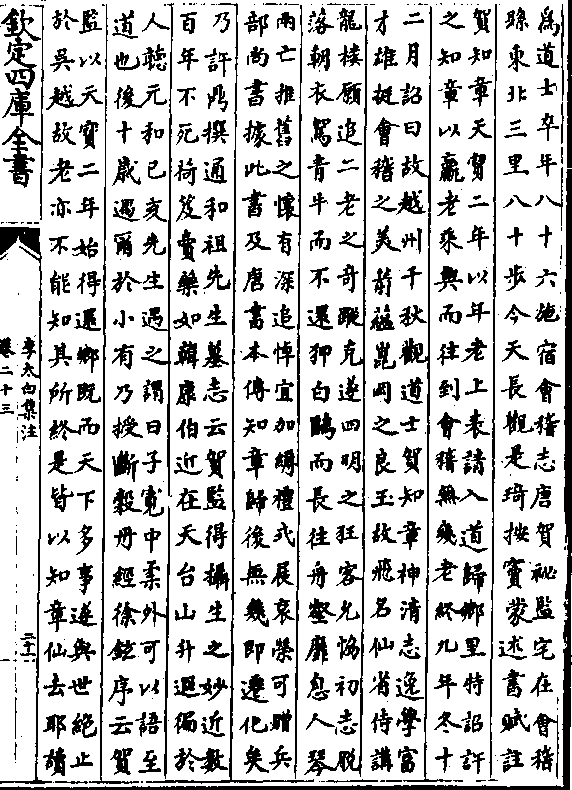 為道士卒年八十六施宿會稽志唐賀秘監宅在會稽
縣東北三里八十步今天長觀是琦按竇蒙述書賦註
賀知章天寳二年以年老上表請入道歸鄉里特詔許
之知章以羸老乘輿而往到會稽無幾老終九年冬十
二月詔曰故越州千秋觀道士賀知章神清志逸學富
才雄挺會稽之美箭蘊崑岡之良玉故飛名仙省侍講
龍樓願追二老之奇蹤克遂四明之狂客允協初志脫
落朝衣駕青牛而不還狎白鷗而長往舟壑靡息人琴
兩亡推舊之懷有深追悼宜加縟禮式展哀榮可贈兵
部尚書據此書及唐書本傳知章歸後無幾即遷化矣
乃許鼎撰通和祖先生墓志云賀監得攝生之妙近數
百年不死荷笈賣藥如韓康伯近在天台山升遐獨於
人聽元和己亥先生遇之謂曰子寬中柔外可以語至
道也後十歲遇爾於小有乃授斷穀丹經徐鉉序云賀
監以天寶二年始得還鄉既而天下多事遂與世絕止
於吳越故老亦不能知其所終是皆以知章仙去耶讀
欽定四庫全書
李太白集注
卷二十三